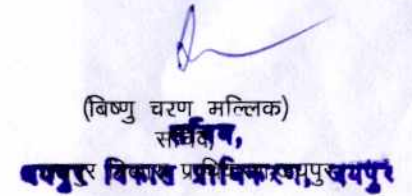 (बिष्णु चरण मल्लिक)
सचिव,
जयपुर विकास प्राधिकरण, जयपुर